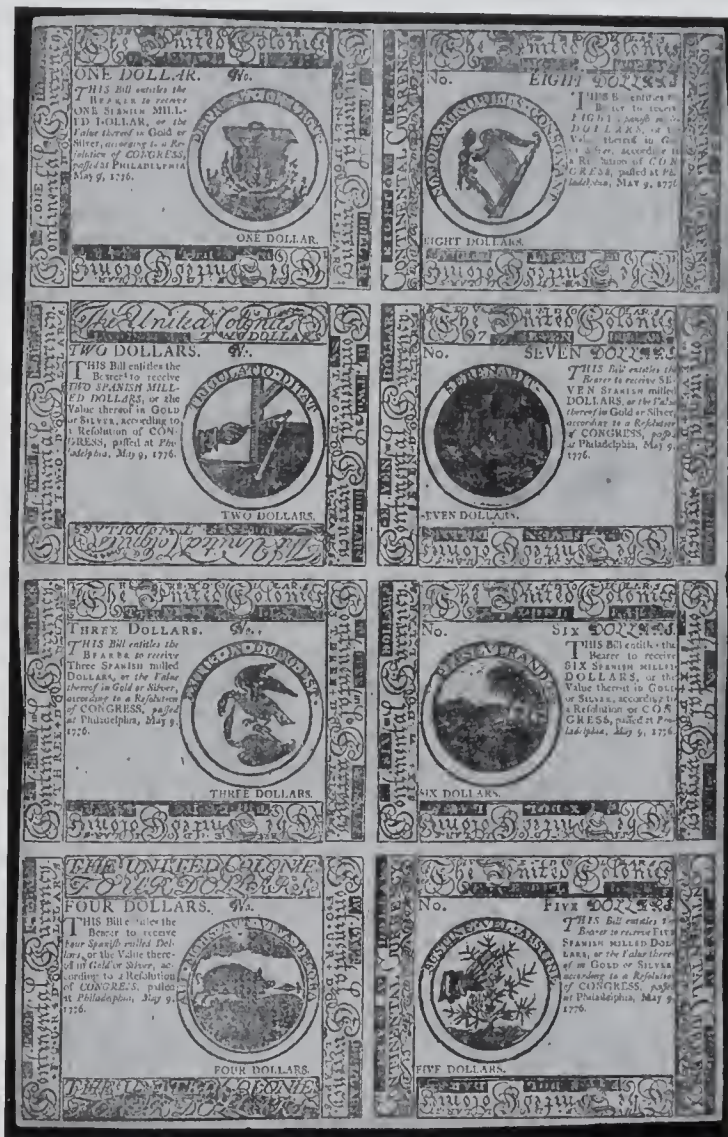 The United Colonies
ONE DOLLAR. No.
THIS Bill entitles the
BEARER to receive
ONE SPANISH MILL-
ED DOLLAR, or the
Value thereof in Gold or
Silver, according to a Re-
solution of CONGRESS,
passed at PHILADELPHIA
May 9, 1776.
DEPRESSA RESURGIT
ONE DOLLAR.
Continental Currency
The United Colonies
The United Colonies
No. EIGHT DOLLARS.
THIS Bill entitles the
Bearer to receive
EIGHT
DOLLARS, or the
Value thereof in Gold
or Silver, according to
a Resolution of CON-
GRESS, passed at Phi-
ladelphia, MAY 9, 1776
MAJORA MINORIBUS CONSONANT
EIGHT DOLLARS.
CONTINENTAL CURRENCY
The United Colonies
The United Colonies
TWO DOLLARS. No.
THIS Bill entitles the
Bearer to receive
TWO SPANISH MILL-
ED DOLLARS, or the
Value thereof in GOLD
or SILVER, according to
a Resolution of CON-
GRESS, passed at Phi-
ladelphia, May 9, 1776.
TRIBULATIO DITAT
TWO DOLLARS.
Continental Currency.
The United Colonies
The United Colonies
No. SEVEN DOLLARS.
THIS Bill entitles the
Bearer to receive SE-
VEN SPANISH milled
DOLLARS, or the Value
thereof in Gold or Silver,
according to a Resolution
of CONGRESS, passed
at Philadelphia, May 9,
1776.
SERENABIT
SEVEN DOLLARS.
Continental Currency.
The United Colonies
The United Colonies
THREE DOLLARS. No.
THIS Bill entitles the
BEARER to receive
Three SPANISH milled
DOLLARS, or the Value
thereof in Gold or Silver,
according to a Resolution
of CONGRESS, passed
at Philadelphia, May 9,
1776.
EXITUS IN DUBIO EST
THREE DOLLARS.
Continental Currency.
The United Colonies
The United Colonies
No. SIX DOLLARS.
THIS Bill entitles the
Bearer to receive
SIX SPANISH MILLED
DOLLARS, or the
Value thereof in GOLD
or SILVER, according to
a Resolution of CON-
GRESS, passed at Phi-
ladelphia, May 9, 1776.
PERSEVERANDO
SIX DOLLARS.
Continental Currency.
The United Colonies
THE UNITED COLONIE
FOUR DOLLARS.
FOUR DOLLARS. No.
THIS Bill entitles the
Bearer to receive
Four Spanish milled Dol-
lars, or the Value there-
of in Gold or Silver, ac-
cording to a Resolution
of CONGRESS, passed
at Philadelphia, May 9,
1776.
AUT MORS AUT VITA DECORA
FOUR DOLLARS.
Continental Currency.
THE UNITED COLONIE
FOUR DOLLARS.
The United Colonies
No. FIVE DOLLARS.
THIS Bill entitles the
Bearer to receive FIVE
SPANISH MILLED DOL-
LARS, or the Value there-
of in GOLD or SILVER,
according to a Resolution
of CONGRESS, passed
at Philadelphia, May 9,
1776.
SUSTINE VEL ABSTINE
FIVE DOLLARS.
CONTINENTAL CURRENCY
The United Colonies